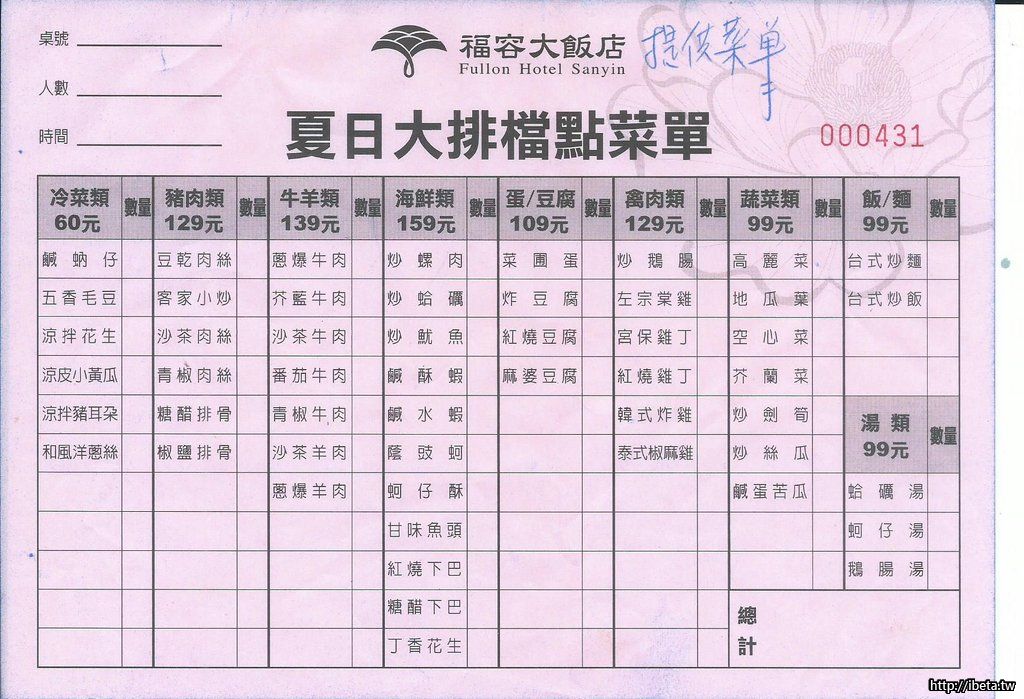 桌號
人數
時間
福容大飯店
Fullon Hotel Sanyin
提供菜單
夏日大排檔點菜單
000431
冷菜類 60元 數量 豬肉類 129元 數量 牛羊類 139元 數量 海鮮類 159元 數量 蛋/豆腐 109元 數量 禽肉類 129元 數量 蔬菜類 99元 數量 飯/麵 99元 數量
鹹蚋仔 豆乾肉絲 蔥爆牛肉 炒螺肉 菜圃蛋 炒鵝腸 高麗菜 台式炒麵
五香毛豆 客家小炒 芥藍牛肉 炒蛤蠣 炸豆腐 左宗棠雞 地瓜葉 台式炒飯
涼拌花生 沙茶肉絲 沙茶牛肉 炒魷魚 紅燒豆腐 宮保雞丁 空心菜
涼皮小黃瓜 青椒肉絲 番茄牛肉 鹹酥蝦 麻婆豆腐 紅燒雞丁 芥蘭菜
涼拌豬耳朵 糖醋排骨 青椒牛肉 鹹水蝦 韓式炸雞 炒劍筍 湯類 99元 數量
和風洋蔥絲 椒鹽排骨 沙茶羊肉 蔭豉蚵 泰式椒麻雞 炒絲瓜
蔥爆羊肉 蚵仔酥 鹹蛋苦瓜 蛤蠣湯
甘味魚頭 蚵仔湯
紅燒下巴 鵝腸湯
糖醋下巴
丁香花生
總計
http://ibeta.tw